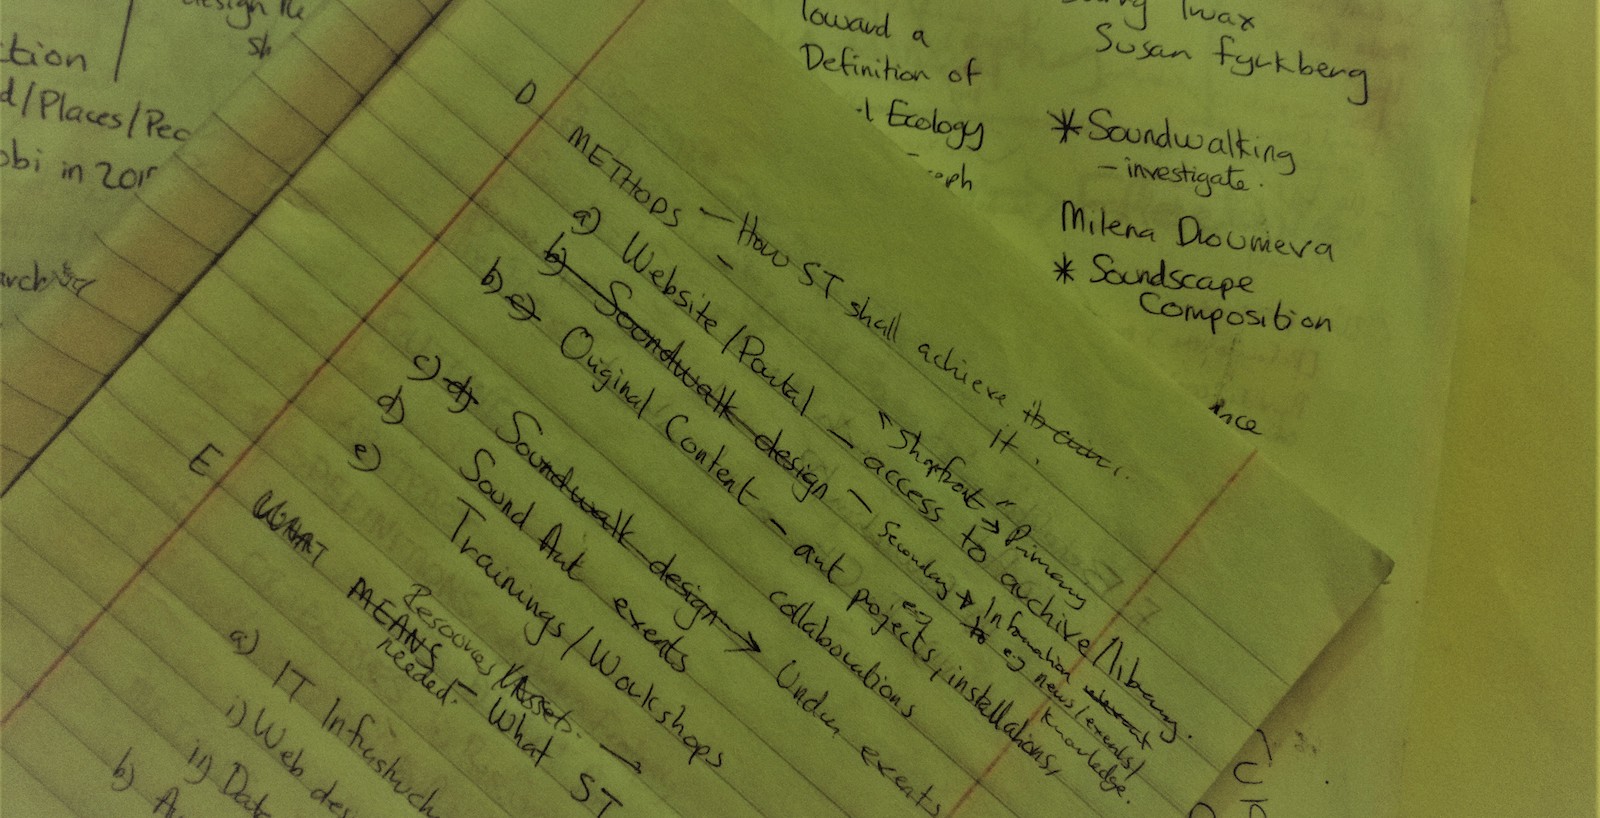 design the
sh
ction
d/Places/Peo
obi in 201
arch
Toward a
Definition of
l Ecology
aph
Barry Truax
Susan Fyrkberg
* Soundwalking
- investigate.
Milena Droumeva
* Soundscape
Composition
nce
D
METHODS - How ST shall achieve
it.
a) Website/Portal - access to archive/library.
"Shopfront" → Primary
b) Soundwalk design - Secondary → Information
eg news/events/
knowledge.
b) c) Original Content - art projects, installations,
eg
collaborations
c) d) Soundwalk design → Under events
d) Sound Art events
e) Trainings/Workshops
E
WHAT MEANS - What ST
Resources/Assets. →
needed.
a) IT Infrastruch
i) Web des
ii) Data
b) A